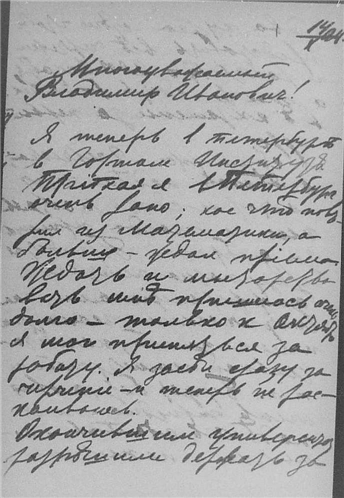 14/X 04.
Многоуважаемый
Владимир Иванович!
Я теперь в Петербурге
в Горном Институте.
Приехал я в Петербург
очень рано; кое что
из Математики, а
больше - ждал приема.
Ждать и мытарство-
вать тут пришлось очень
долго - только к
я мог приняться за
работу. Я засел сразу за
и теперь не рас-
каиваюсь.
Окончившим университет
разрешили держать за